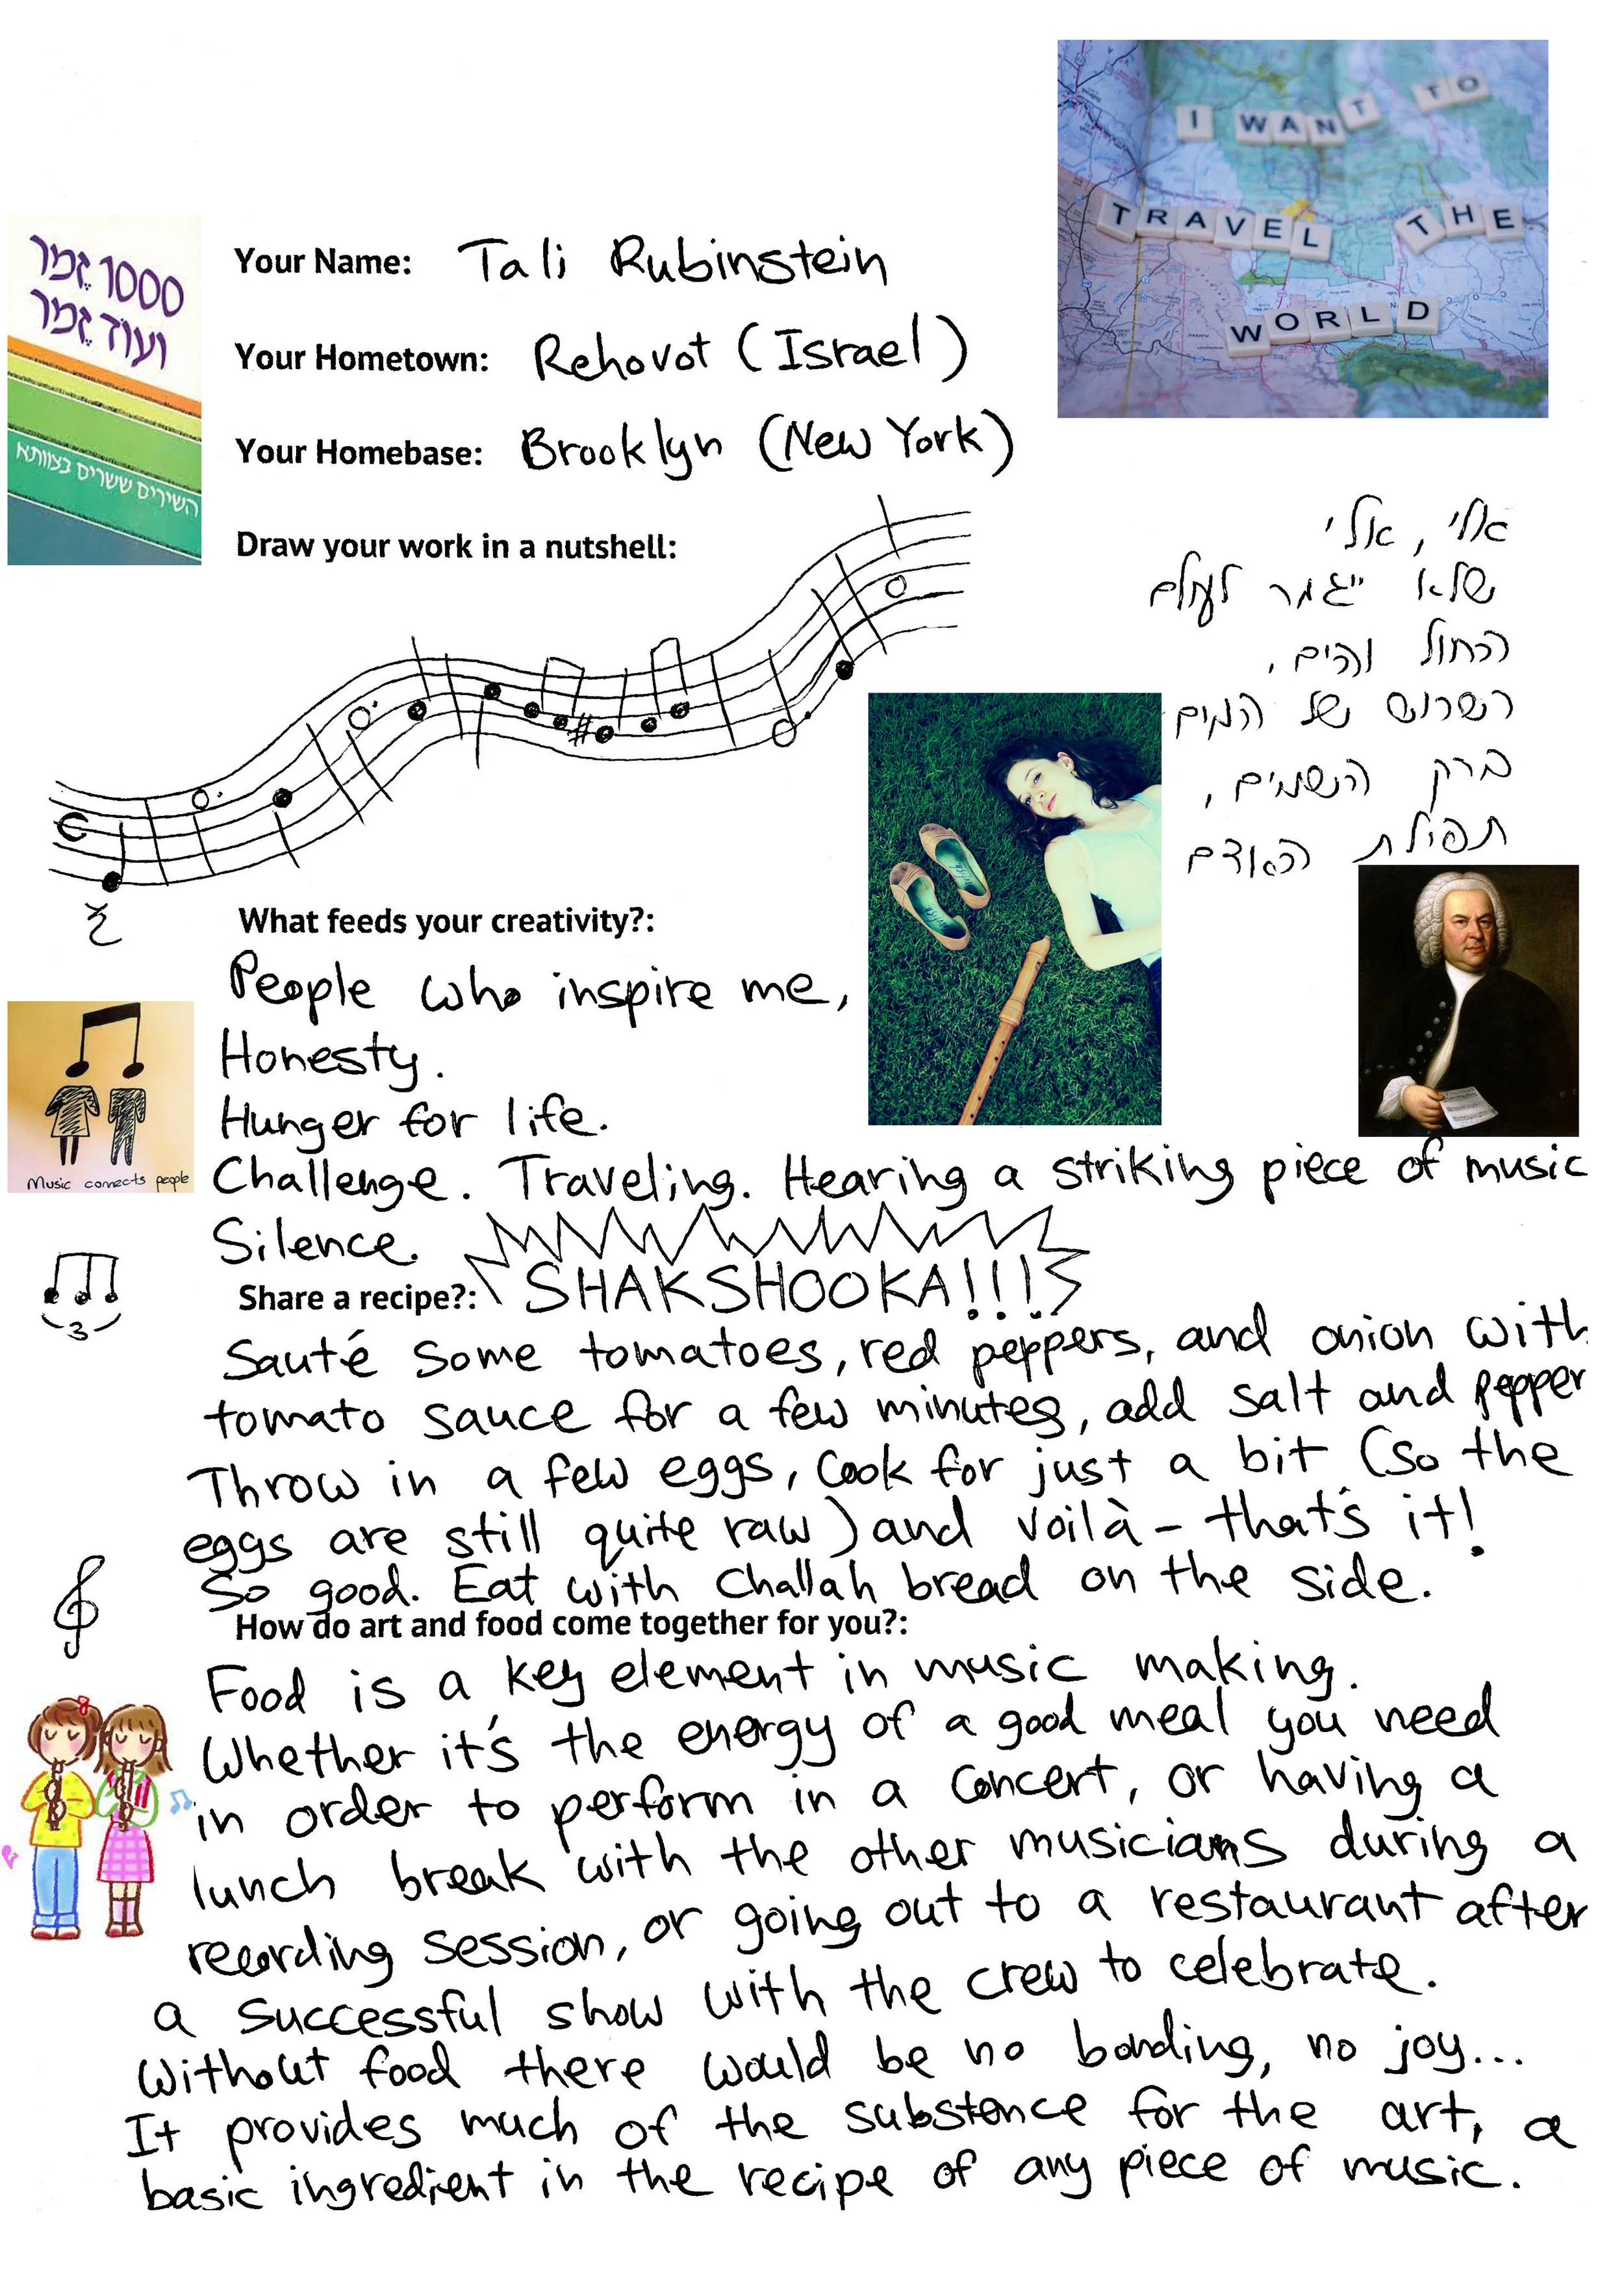 I WANT TO
TRAVEL THE
WORLD
1000 זֶמֶר
ועוד זֶמֶר
השירים ששרים בצוותא
Your Name: Tali Rubinstein
Your Hometown: Rehovot (Israel)
Your Homebase: Brooklyn (New York)
Draw your work in a nutshell:
אלי, אלי
שלא ייגמר לעולם
החול והים,
רשרוש של המים
ברק השמים,
תפילת האדם
What feeds your creativity?:
People who inspire me,
Honesty.
Hunger for life.
Challenge. Traveling. Hearing a striking piece of music
Silence.
Music connects people
3
Share a recipe?: SHAKSHOOKA!!!
Sauté some tomatoes, red peppers, and onion with
tomato sauce for a few minutes, add salt and pepper
Throw in a few eggs, cook for just a bit (so the
eggs are still quite raw) and voilà - that's it!
So good. Eat with challah bread on the side.
How do art and food come together for you?:
Food is a key element in music making.
Whether it's the energy of a good meal you need
in order to perform in a concert, or having a
lunch break with the other musicians during a
recording session, or going out to a restaurant after
a successful show with the crew to celebrate.
Without food there would be no bonding, no joy...
It provides much of the substance for the art, a
basic ingredient in the recipe of any piece of music.